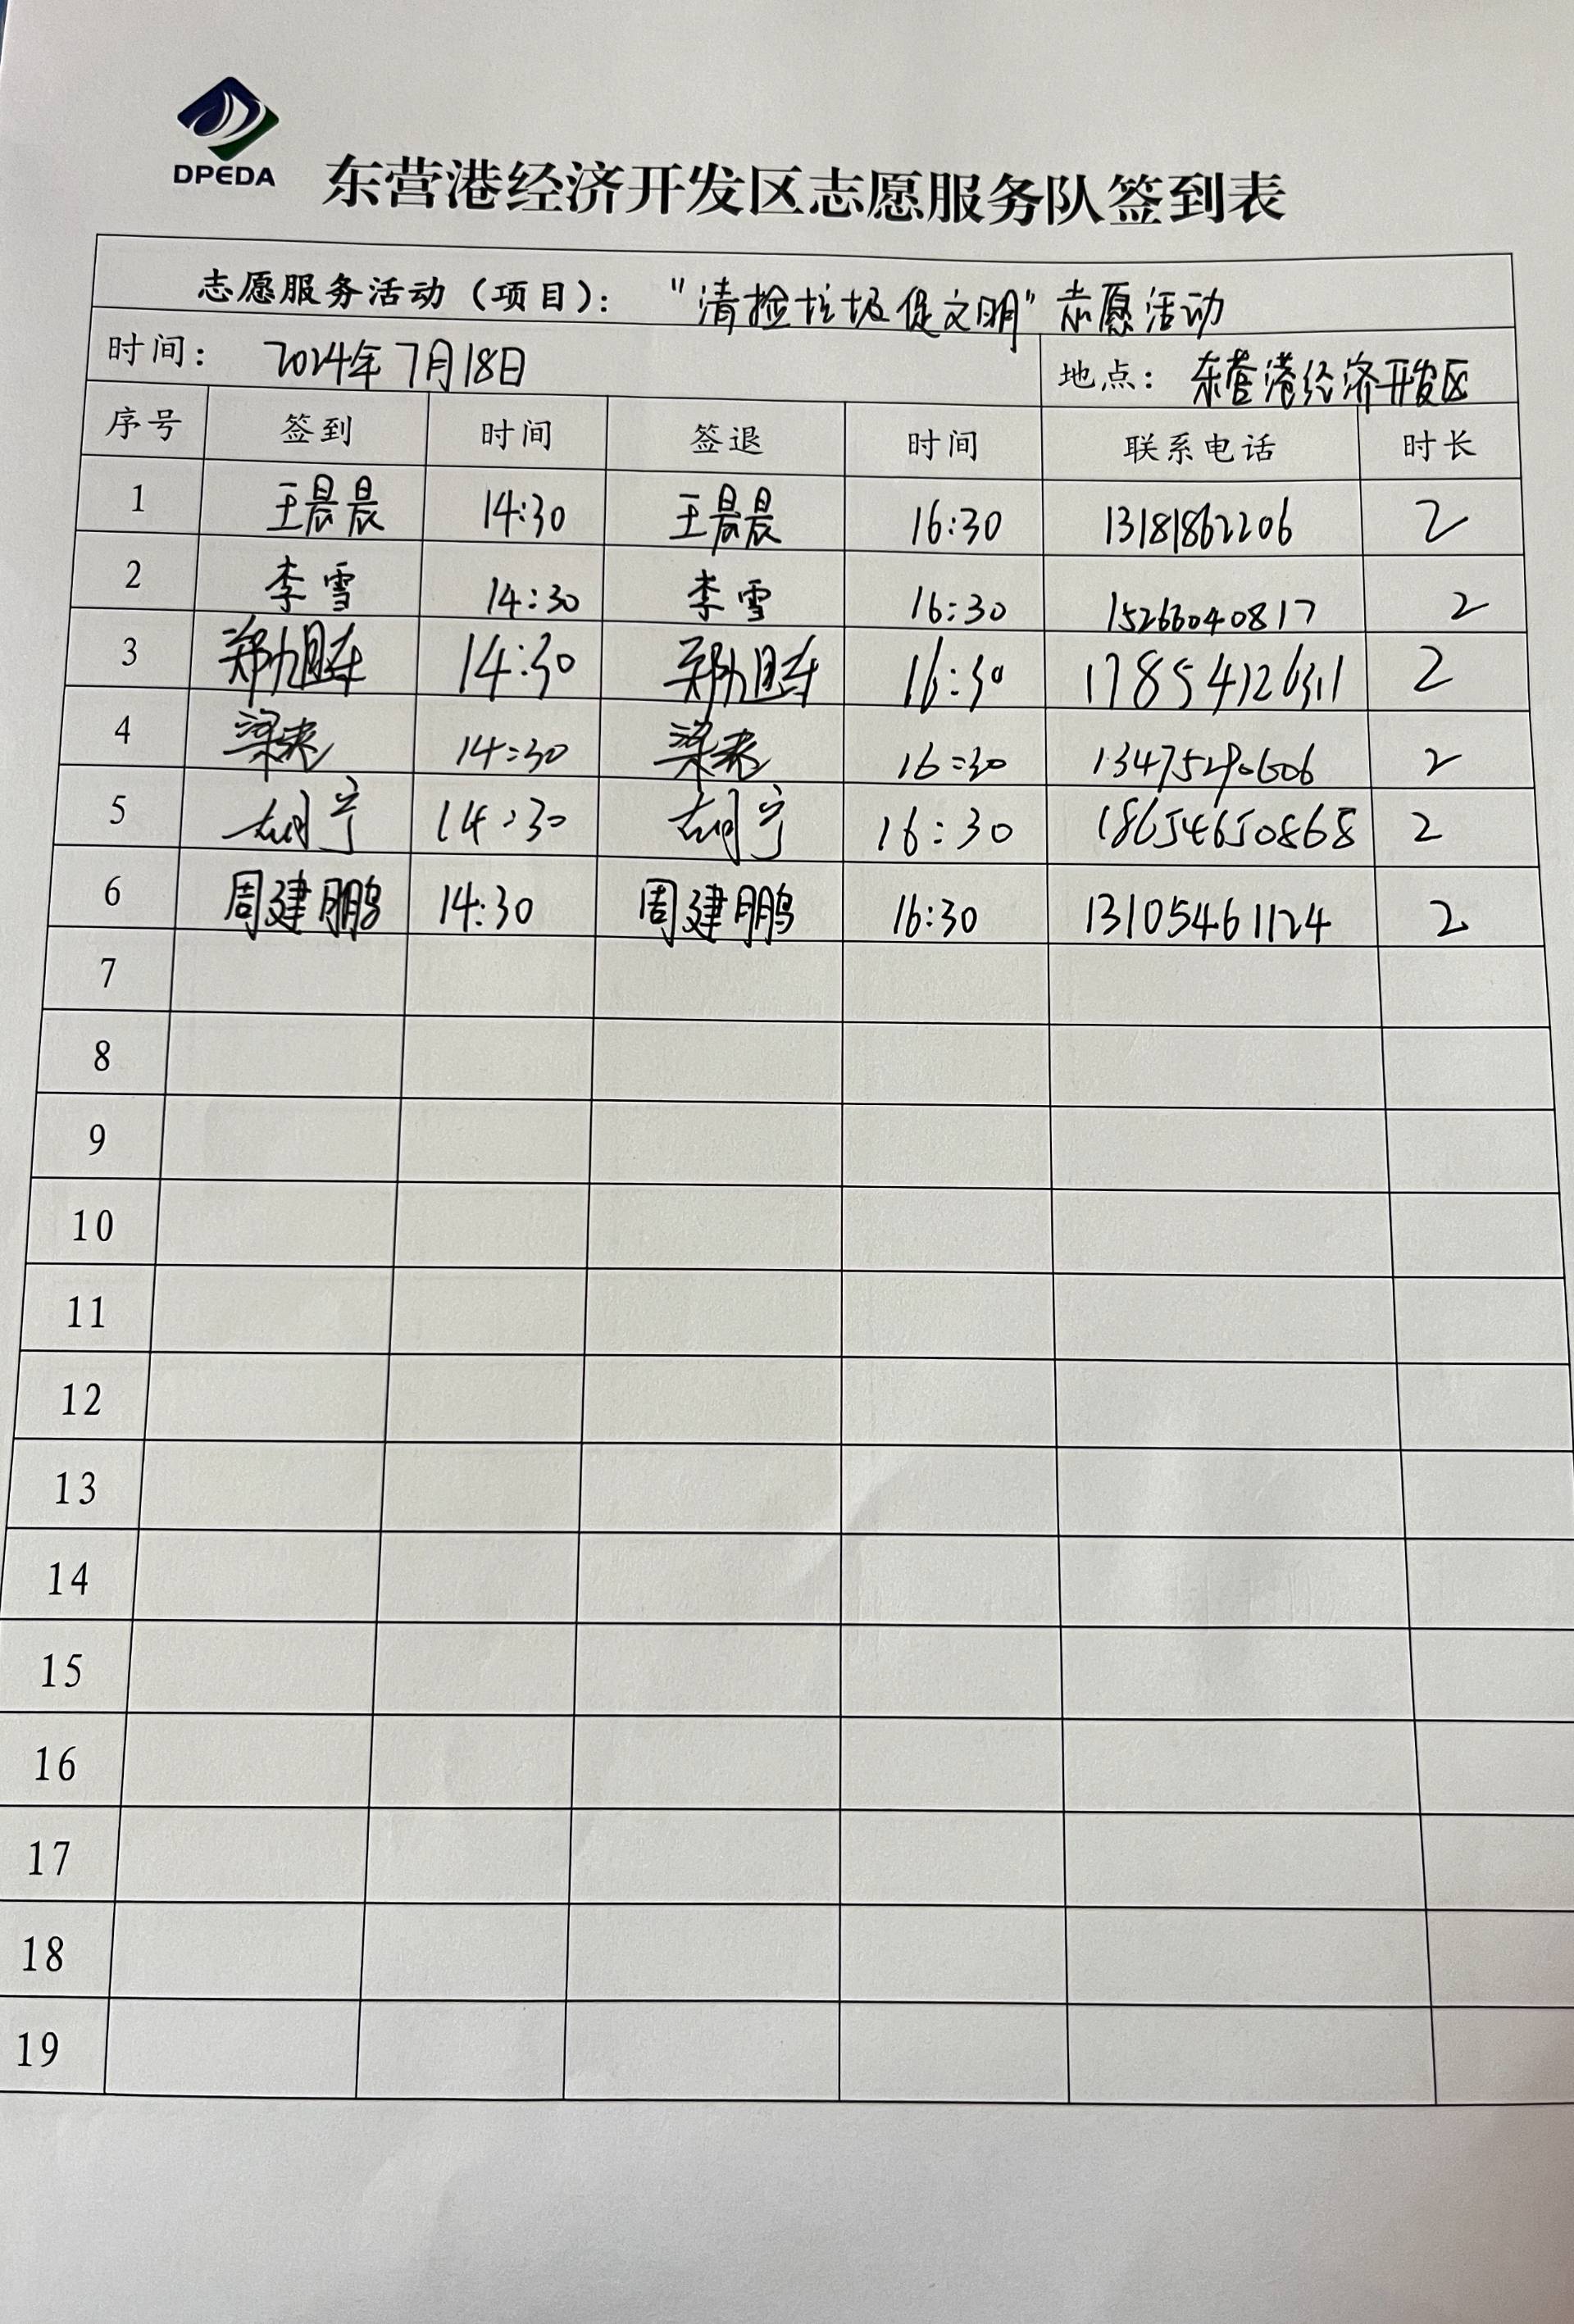 DPEDA
东营港经济开发区志愿服务队签到表
志愿服务活动（项目）： "清捡垃圾促文明"志愿活动
时间： 2024年7月18日 地点： 东营港经济开发区
序号 签到 时间 签退 时间 联系电话 时长
1 王晨晨 14:30 王晨晨 16:30 13181862206 2
2 李雪 14:30 李雪 16:30 15266040817 2
3 14:30 16:30 17854126311 2
4 14:30 16:30 2
5 胡宁 14:30 胡宁 16:30 18654650868 2
6 周建鹏 14:30 周建鹏 16:30 13105461124 2
7
8
9
10
11
12
13
14
15
16
17
18
19